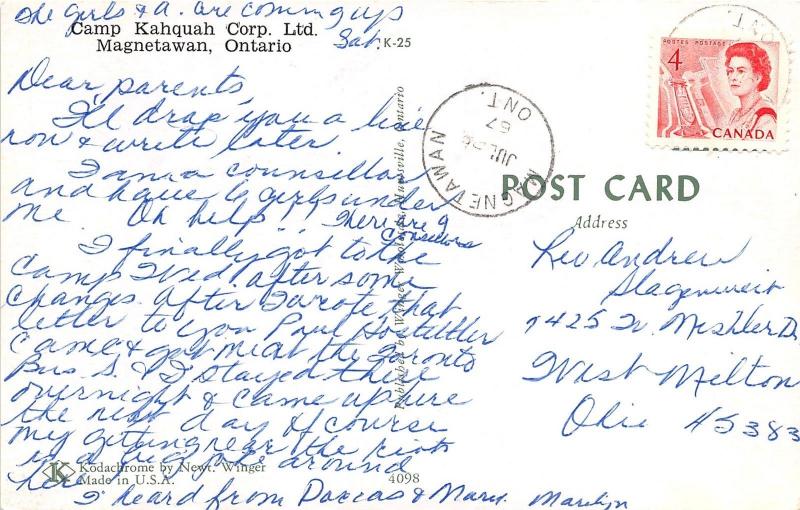 The girls & A. are coming up
Sat.
Camp Kahquah Corp. Ltd.
Magnetawan, Ontario
K-25
Dear parents,
I'll drop you a line
now & write later.
I am a counsillor
and have 6 girls under
me. Oh help!! There are 9
Conselors
I finally got to the
camp Wed. after some
changes. After I wrote that
letter to you Paul Hostetler
came & got me at the Toronto
Bus. S. & I stayed there
overnight & came up here
the next day. Of course
my getting near the riots
is a big joke around
here.
I heard from Dorcas & Mary. Marilyn
Published by Winger Woodcrafts, Huntsville, Ontario
Kodachrome by Newt. Winger
Made in U.S.A.
4098
K
MAGNETAWAN
JUL
67
ONT.
ONT.
POSTES POSTAGE
4
CANADA
POST CARD
Address
Rev Andrew
Slagenweit
7425 W. Meshler Dr
West Milton
Ohio 45383